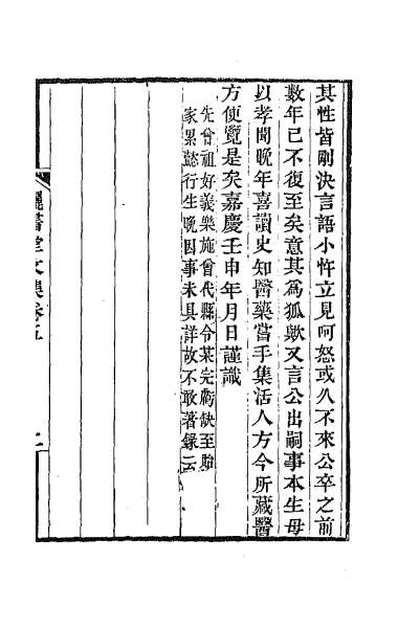 其性皆剛決言語小忤立見呵怒或久不來公卒之前
數年已不復至矣意其為狐歟又言公出嗣事本生母
以孝聞晚年喜讀史知醫藥嘗手集活人方今所藏醫
方便覽是矣嘉慶壬申年月日謹識
先曾祖好義樂施曾代縣令某完虧缺至貽
家累懿行生晚因事未具詳故不敢著錄云
曬書堂文集卷五